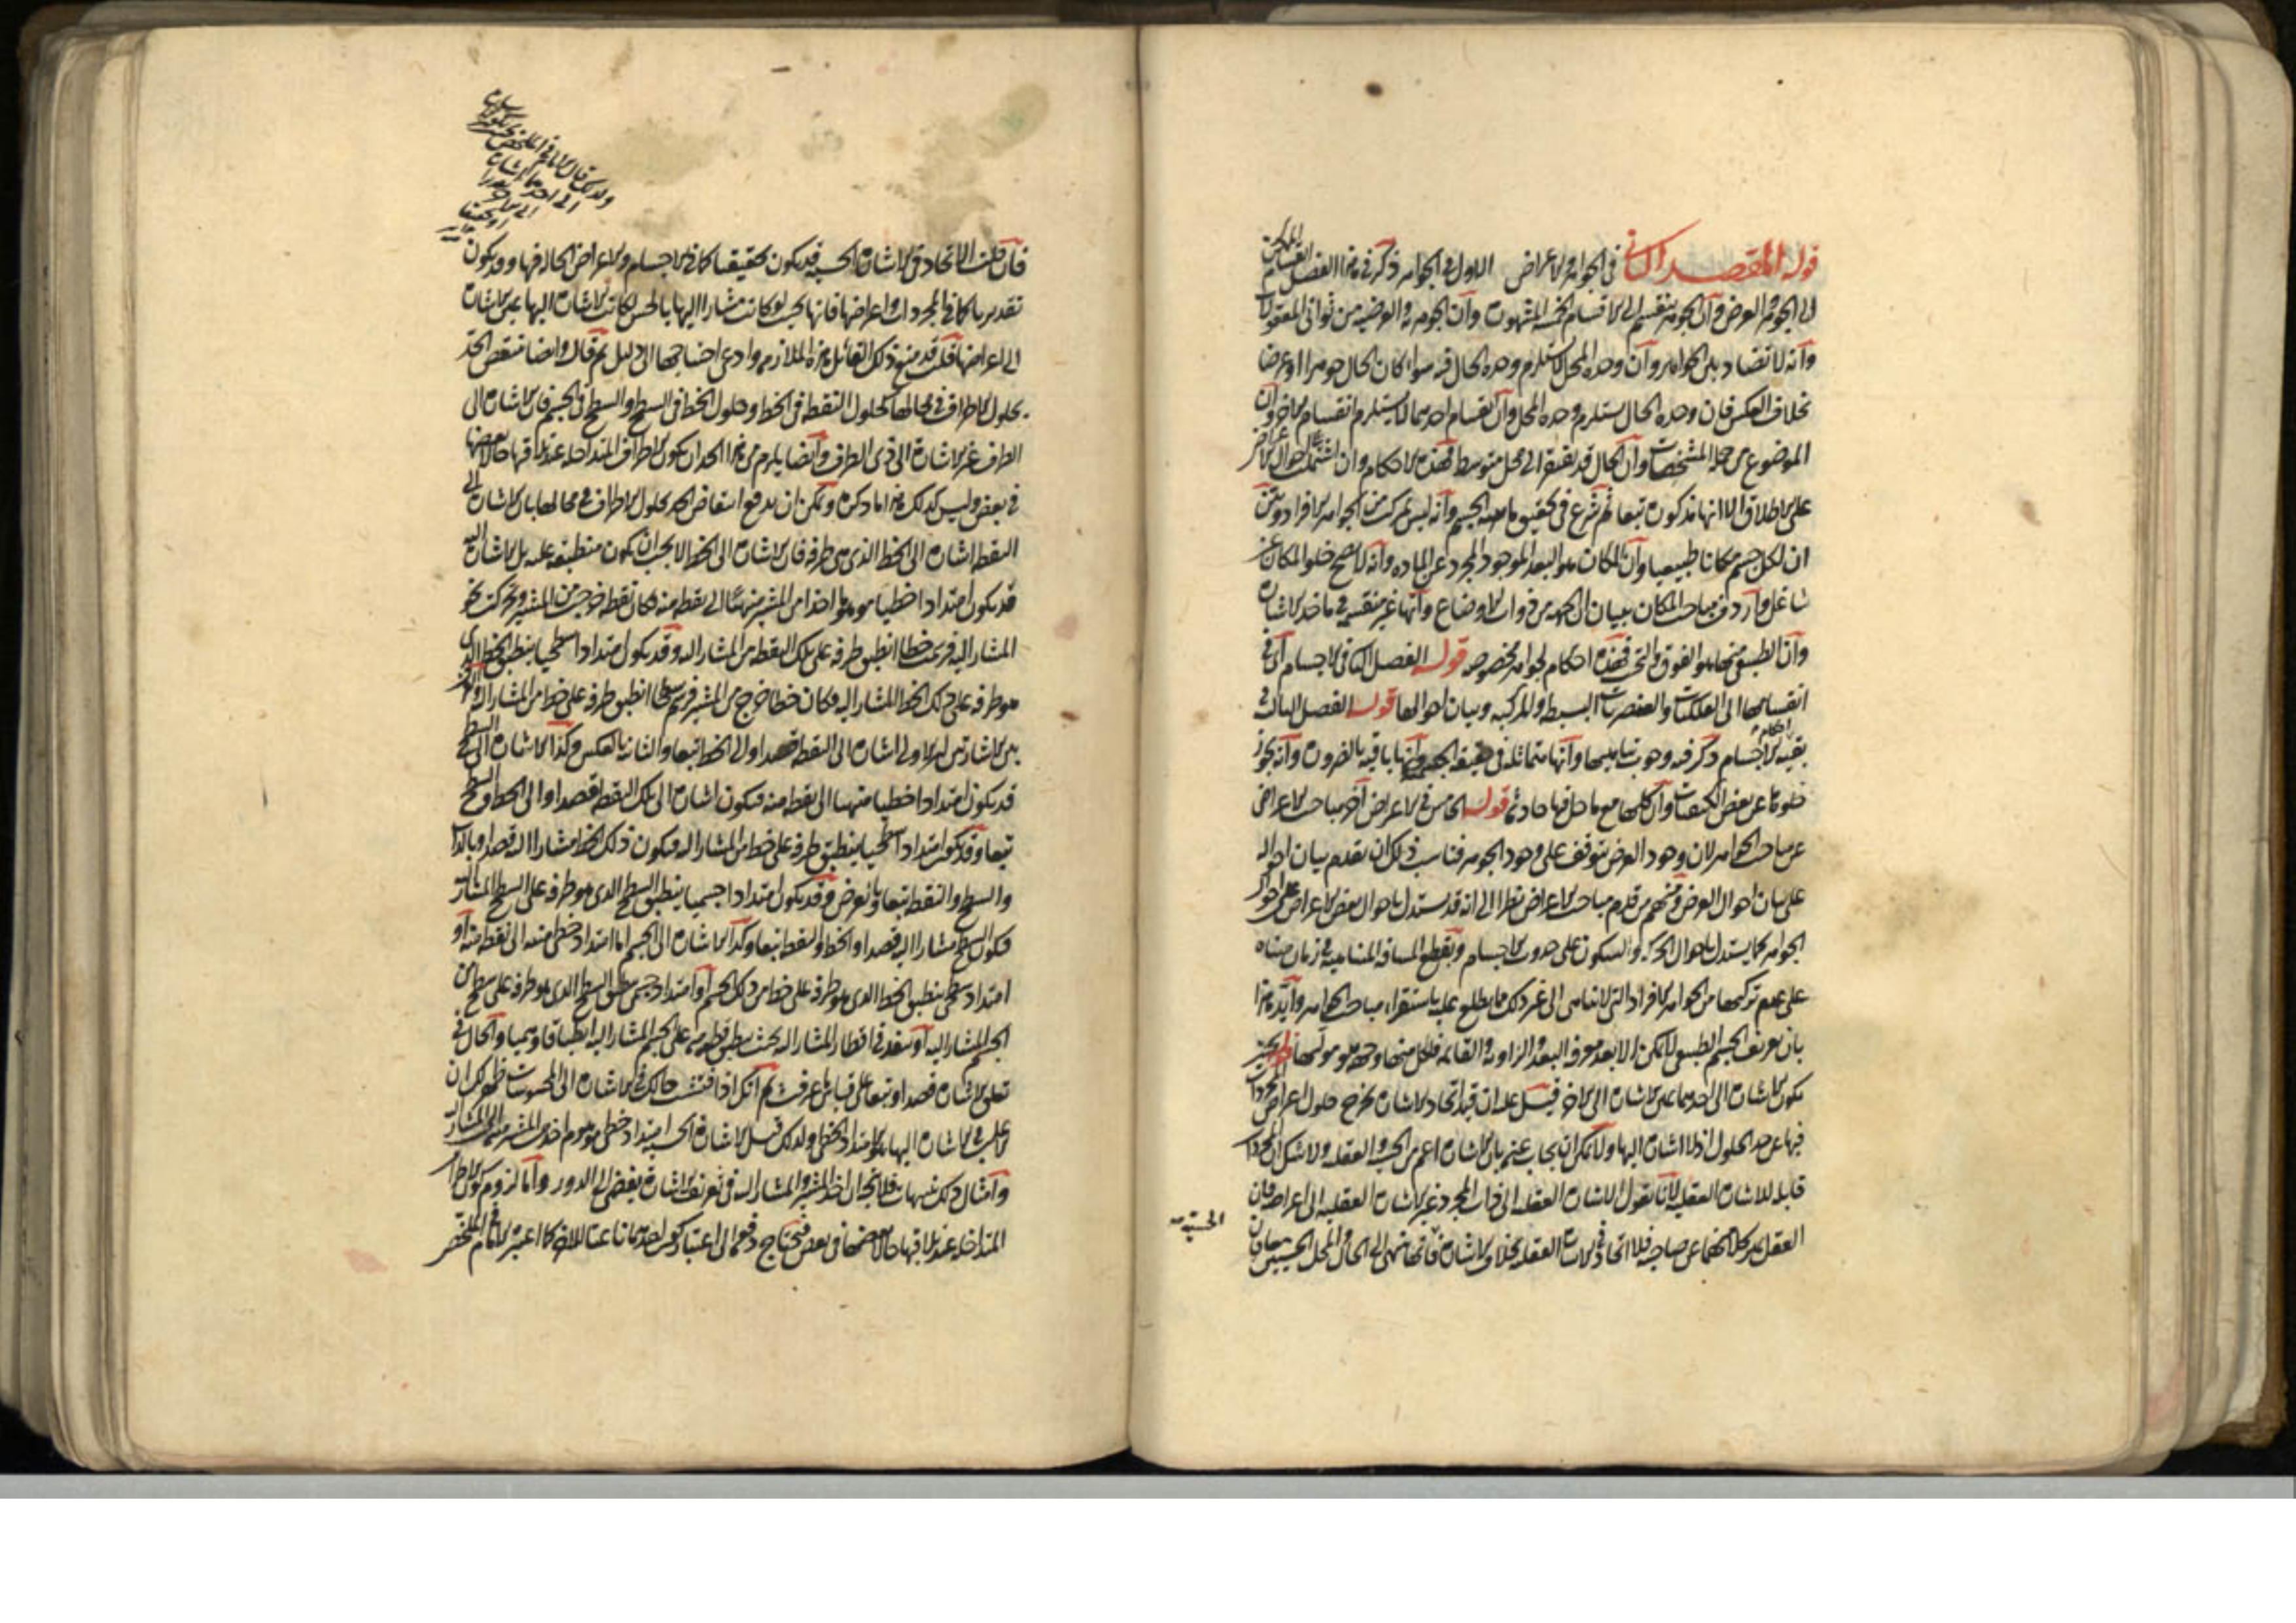 قوله المقصد الثاني في الجواهر والاعراض الاول في الجواهر ذكر في هذا الفصل انقسام الممكن
الى الجوهر والعرض وان الجوهر ينقسم الى الاقسام الخمسة المشهورة وان الجوهرية والعرضية من ثواني المعقولات
وانه لا تضاد بين الجواهر وان وحدة المحل لا يستلزم وحدة الحال فيه سواء كان الحال جوهرا او عرضا
بخلاف العكس فان وحدة الحال يستلزم وحدة المحل وان انقسام احدهما لا يستلزم انقسام الاخر وان
الموضوع من جملة المشخصات وان الحال قد يفتقر الى محل متوسط فهذه الاحكام وان اشتملت احوال الاعراض
على الاطلاق الا انها مذكورة تبعا ثم شرع في تحقيق ماهية الجسم وانه ليس بمركب من الجواهر الافراد وبين
ان لكل جسم مكانا طبيعيا وان المكان هو البعد الموجود المجرد عن المادة وانه لا يصح خلو المكان عن
شاغل واردف مباحث المكان ببيان ان الجهة من ذوات الاوضاع وانها غير منقسمة في ماخذ الاشارة
وان الطبيعي منها هو الفوق والتحت فهذه احكام لجواهر مخصوصة قوله الفصل الثاني في الاجسام اي في
انقسامها الى الفلكيات والعنصريات البسيطة والمركبة وبيان احوالها قوله الفصل الثالث في
بقية احكام الاجسام ذكر فيه وجوب تناهيها وانها متماثلة في حقيقة الجسمية وانها باقية بالضرورة وانه يجوز
خلوها عن بعض الكيفيات وان كلها مع ما حل فيها حادثة قوله الخامس في الاعراض اخر مباحث الاعراض
عن مباحث الجواهر لان وجود العرض يتوقف على وجود الجوهر فناسب ذلك ان يقدم بيان احواله
على بيان احوال العرض ومنهم من قدم مباحث الاعراض نظرا الى انه قد يستدل باحوال بعض الاعراض على احوال
الجواهر كما يستدل باحوال الحركة والسكون على حدوث الاجسام وبقطع المسافة المتناهية في زمان متناه
على عدم تركبها من الجواهر الافراد التي لا تتناهى الى غير ذلك مما يطلع عليه باستقراء مباحث الجواهر وايد هذا
بان تعريف الجسم الطبيعي لا يمكن الا بعد معرفة البعد والزاوية والقائمة فلكل منهما وجهة هو موليها قوله بحيث
يكون الاشارة الى احدهما عين الاشارة الى الاخر قيل عليه ان قيد اتحاد الاشارة يخرج حلول اعراض المجردات
فيها عن حد الحلول اذ لا اشارة اليها ولا يمكن ان يجاب عنه بان الاشارة اعم من الحسية والعقلية ولا شك ان المجردات
قابلة للاشارة العقلية لانا نقول الاشارة العقلية الى ذات المجرد غير الاشارة العقلية الى اعراضه فان
العقل يميز كلا منهما عن صاحبه فلا اتحاد في الاشارة العقلية بخلاف الاشارة الحسية فانها تنتهي الى الحال والمحل الحسيين معا فان
فان قلت الاتحاد في الاشارة الحسية قد يكون تحقيقيا كما في الاجسام والاعراض الحالة فيها وقد يكون
تقديريا كما في المجردات واعراضها فانها بحيث لو كانت مشارا اليها بالحس لكانت الاشارة اليها عين الاشارة
الى اعراضها قلت قد منع ذلك القائل هذه الملازمة وادعى احتياجها الى دليل ثم قال وايضا ينتقض الحد
بحلول الاطراف في محالها كحلول النقطة في الخط وحلول الخط في السطح والسطح في الجسم فان الاشارة الى
الطرف غير الاشارة الى ذي الطرف وايضا يلزم من هذا الحد ان يكون الاطراف المتداخلة عند تلاقيها حالا بعضها
في بعض وليس كذلك هذا ما ذكره ويمكن ان يدفع انتقاض الحد بحلول الاطراف في محالها بان الاشارة الى
النقطة اشارة الى الخط الذي هي طرفه فان الاشارة الى الخط لا يجب ان يكون منطبقة عليه بل الاشارة اليه
قد يكون امتدادا خطيا موهوما اخذا من المشير منتهيا الى نقطة منه فكان نقطة خرجت من المشير وتحركت نحو
المشار اليه فرسمت خطا انطبق طرفه على تلك النقطة من المشار اليه وقد يكون امتدادا سطحيا ينطبق الخط الذي
هو طرفه على ذلك الخط المشار اليه فكان خطا خرج من المشير فرسم سطحا انطبق طرفه على خط من المشار اليه والفرق
بين الاشارتين ان الاولى اشارة الى النقطة قصدا والى الخط تبعا والثانية بالعكس وكذا الاشارة الى السطح
قد يكون امتدادا خطيا منتهيا الى نقطة منه فيكون اشارة الى تلك النقطة قصدا والى الخط والسطح
تبعا وقد يكون امتدادا سطحيا ينطبق طرفه على خط من المشار اليه فيكون ذلك الخط مشارا اليه قصدا وبالذات
والسطح والنقطة تبعا وبالعرض وقد يكون امتدادا جسميا ينطبق السطح الذي هو طرفه على السطح المشار اليه
فيكون السطح مشارا اليه قصدا والخط والنقطة تبعا وكذا الاشارة الى الجسم اما امتداد خطي منته الى نقطة منه او
امتداد سطحي ينطبق الخط الذي هو طرفه على خط من ذلك الجسم او امتداد جسمي ينطبق السطح الذي هو طرفه على سطح من
الجسم المشار اليه او ينفذ في اقطار المشار اليه بحيث ينطبق كل قطعة منه على الجسم المشار اليه انطباقا وهميا والحال في
تعلق الاشارة قصدا وتبعا على قياس ما عرفت ثم انك اذا فتشت حالك في الاشارة الى المحسوسات ظهر لك ان
الاغلب في الاشارة اليها هو الامتداد الخطي ولذلك قيل الاشارة الحسية امتداد خطي موهوم اخذ من المشير منته الى المشار اليه
وامثال ذلك تنبيهات فلا يتجه ان اخذ المشير والمشار اليه في تعريف الاشارة يفضي الى الدور واما لزوم كون الاطراف
المتداخلة عند تلاقيها حالا بعضها في بعض فيحتاج دفعها الى اعتبار كون احدهما ناعتا للاخر كما اعتبره الامام في الملخص